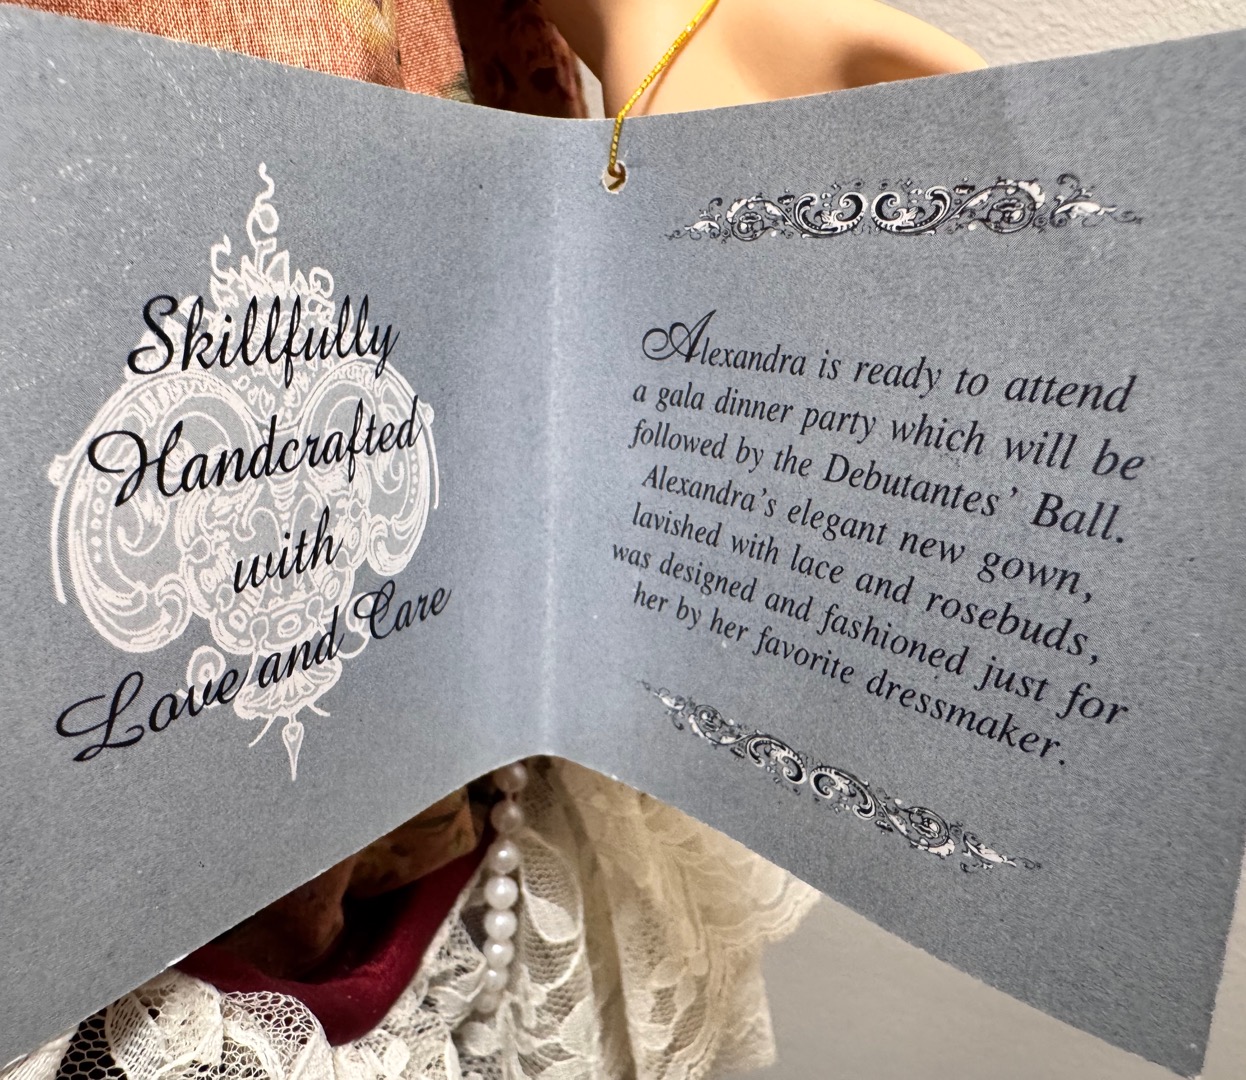 Skillfully
Handcrafted
with
Love and Care
Alexandra is ready to attend
a gala dinner party which will be
followed by the Debutantes' Ball.
Alexandra's elegant new gown,
lavished with lace and rosebuds,
was designed and fashioned just for
her by her favorite dressmaker.